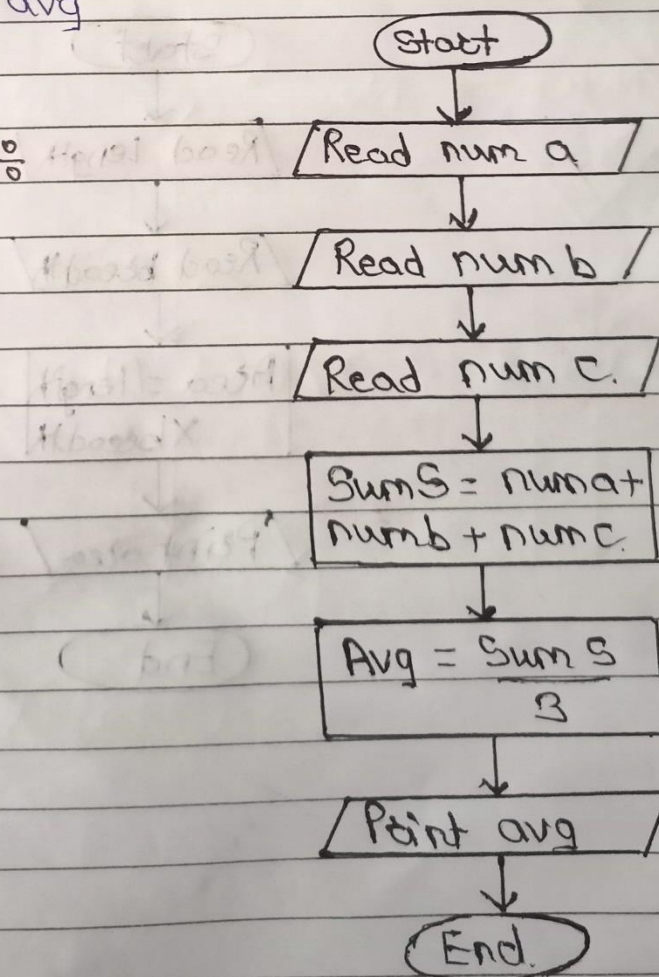 avg
Start
Read num a
Read num b
Read num c.
Sum S = num a +
num b + num c.
Avg = Sum S
3
Print avg
End.